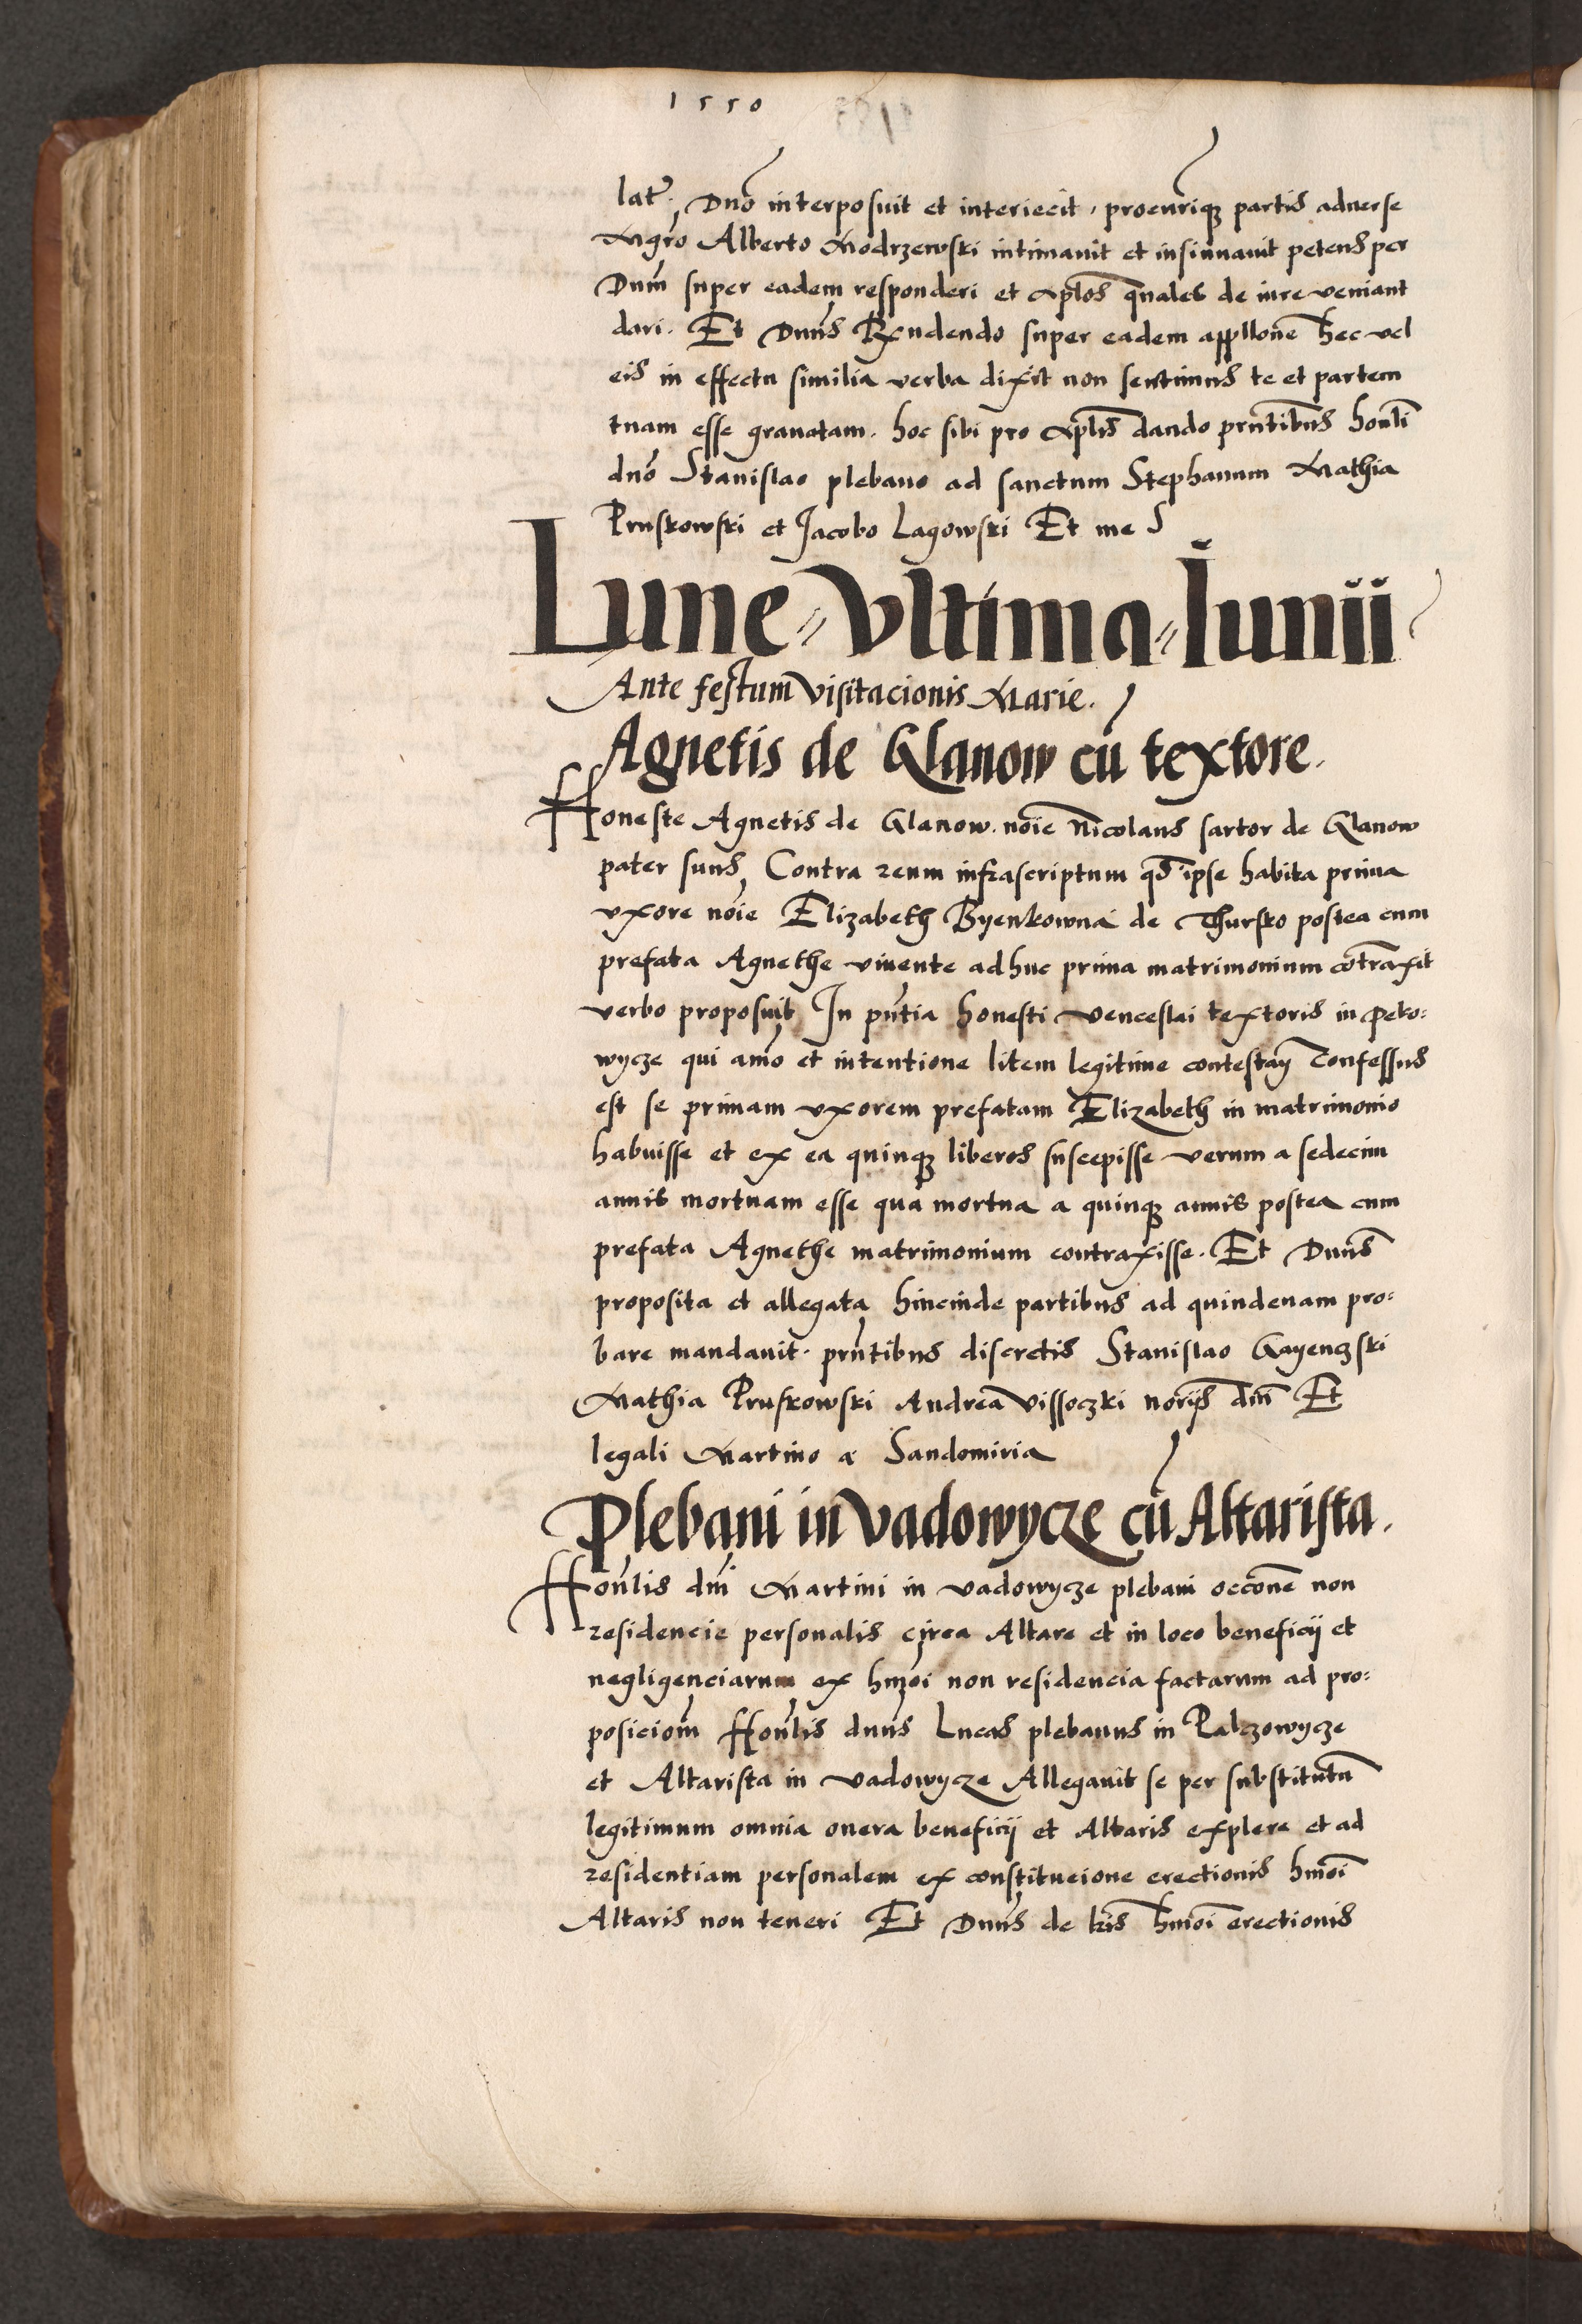 1550
latr̃. Dno interposuit et interiecit, procurriq₃ partis aduerse
Mgro Alberto Modrzewski intimauit et insinuauit petens per
Dnm super eadem responderi et aplos quales de iure veniant
dari. Et Dnus Rndendo super eadem appllone hec vel
eis in effectu similia verba dixit non sentimus te et partem
tuam esse grauatam. hoc sibi pro aplis dando prntibus honli
dno Stanislao plebano ad sanctum Stephanum Mathia
Pruskowski et Jacobo Lagowski Et me S
Lune Vltima Iunii
Ante festum Visitacionis Marie.
Agnetis de Glanow cũ textore.
Honeste Agnetis de Glanow. noĩe Nicolaus sartor de Glanow
pater suus, Contra reum infrascriptum qd ipse habita prima
vxore noĩe Elizabeth Byenkowna de Thursko postea cum
prefata Agnethe viuente adhuc prima matrimonium cõtraxit
verbo proposuit In pntia honesti Venceslai textoris in Peko-
wycze qui amo et intentione litem legitime contestaɳ Confessus
est se primam vxorem prefatam Elizabeth in matrimonio
habuisse et ex ea quinq₃ liberos suscepisse verum a sedecim
annis mortuam esse qua mortua a quinq₃ annis postea cum
prefata Agnethe matrimonium contraxisse. Et Dnus
proposita et allegata hincinde partibus ad quindenam pro-
bare mandauit. prntibus discretis Stanislao Gayenczski
Mathia Pruskowski Andrea Vissoczki noriis dnĩ Et
legali Martino a Sandomiria
Plebani in Vadowycze cũ Altarista.
Honlis dni Martini in Vadowycze plebani occone non
residencie personalis circa Altare et in loco beneficii et
negligenciarum ex hmoi non residencia factarum ad pro-
posiciom Honlis dnus Lucas plebanus in Palczowycze
et Altarista in Vadowycze Allegauit se per substitutũ
legitimum omnia onera beneficii et Altaris explere et ad
residentiam personalem ex constitucione erectionis hmoĩ
Altaris non teneri Et Dnus de lris hmoĩ erectionis